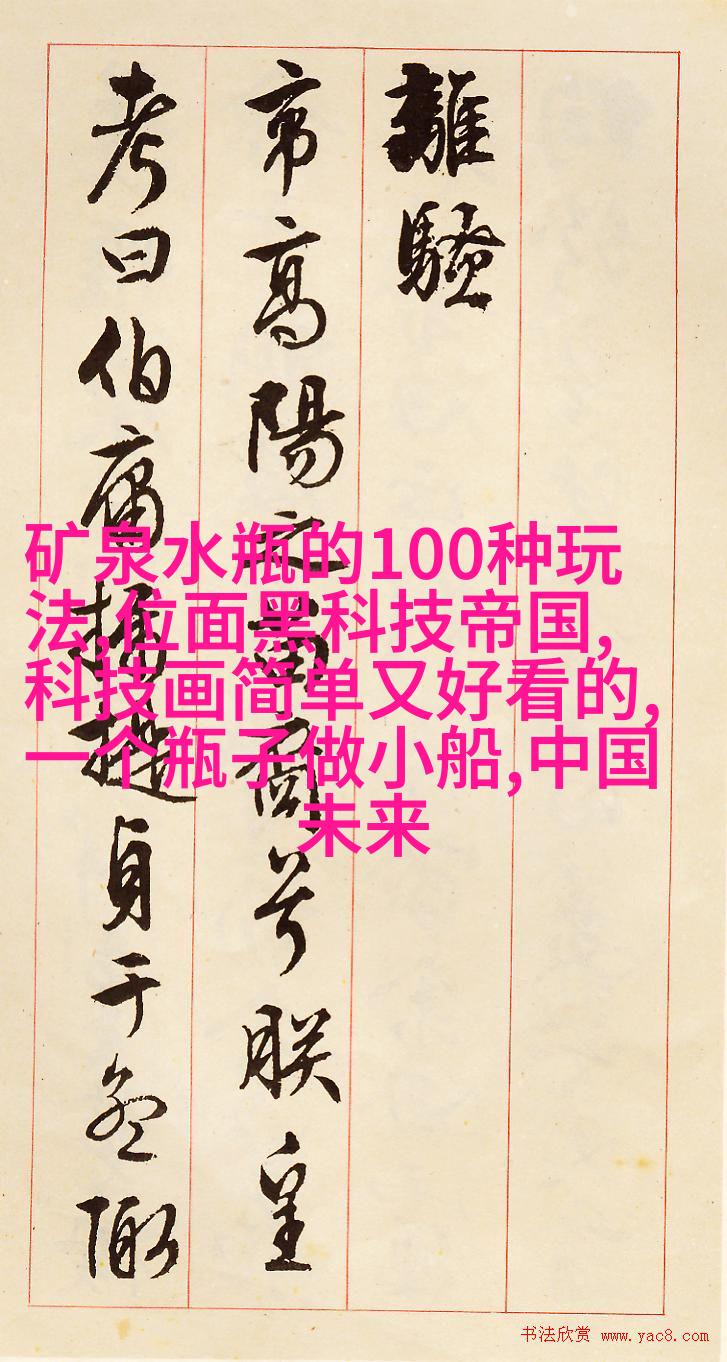 離騷
帝高陽之苗裔兮朕皇
考曰伯庸攝提貞于孟陬
矿泉水瓶的100种玩
法,位面黑科技帝国,
科技画简单又好看的,
一个瓶子做小船,中国
未来
书法欣赏 www.yac8.com